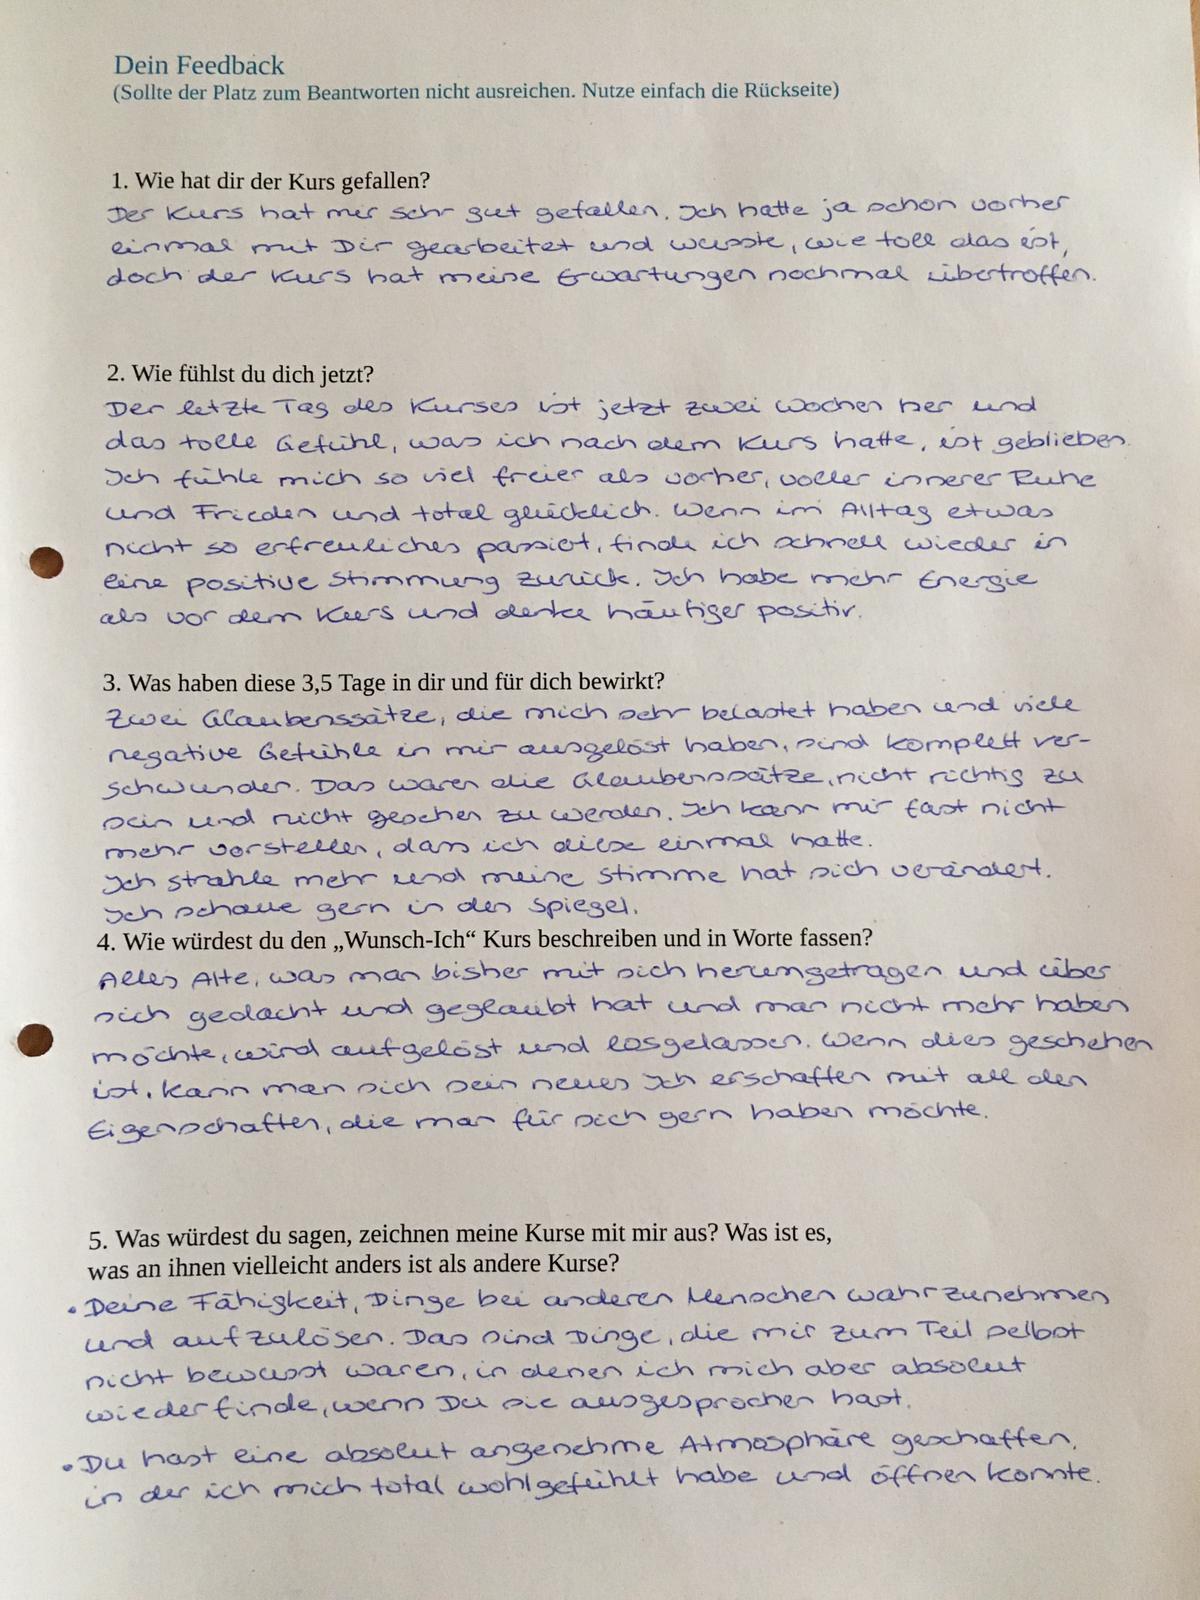 Dein Feedback
(Sollte der Platz zum Beantworten nicht ausreichen. Nutze einfach die Rückseite)
1. Wie hat dir der Kurs gefallen?
Der Kurs hat mir sehr gut gefallen. Ich hatte ja schon vorher
einmal mit Dir gearbeitet und wusste, wie toll das ist,
doch der Kurs hat meine Erwartungen nochmal übertroffen.
2. Wie fühlst du dich jetzt?
Der letzte Tag des Kurses ist jetzt zwei Wochen her und
das tolle Gefühl, was ich nach dem Kurs hatte, ist geblieben.
Ich fühle mich so viel freier als vorher, voller innerer Ruhe
und Frieden und total glücklich. Wenn im Alltag etwas
nicht so erfreuliches passiert, finde ich schnell wieder in
eine positive Stimmung zurück. Ich habe mehr Energie
als vor dem Kurs und denke häufiger positiv.
3. Was haben diese 3,5 Tage in dir und für dich bewirkt?
Zwei Glaubenssätze, die mich sehr belastet haben und viele
negative Gefühle in mir ausgelöst haben, sind komplett ver-
schwunden. Das waren die Glaubenssätze, nicht richtig zu
sein und nicht gesehen zu werden. Ich kann mir fast nicht
mehr vorstellen, dass ich diese einmal hatte.
Ich strahle mehr und meine Stimme hat sich verändert.
Ich schaue gern in den Spiegel.
4. Wie würdest du den „Wunsch-Ich“ Kurs beschreiben und in Worte fassen?
Alles Alte, was man bisher mit sich herumgetragen und über
sich gedacht und geglaubt hat und man nicht mehr haben
möchte, wird aufgelöst und losgelassen. Wenn dies geschehen
ist, kann man sich sein neues Ich erschaffen mit all den
Eigenschaften, die man für sich gern haben möchte.
5. Was würdest du sagen, zeichnen meine Kurse mit mir aus? Was ist es,
was an ihnen vielleicht anders ist als andere Kurse?
• Deine Fähigkeit, Dinge bei anderen Menschen wahrzunehmen
und aufzulösen. Das sind Dinge, die mir zum Teil selbst
nicht bewusst waren, in denen ich mich aber absolut
wiederfinde, wenn Du sie ausgesprochen hast.
• Du hast eine absolut angenehme Atmosphäre geschaffen,
in der ich mich total wohlgefühlt habe und öffnen konnte.